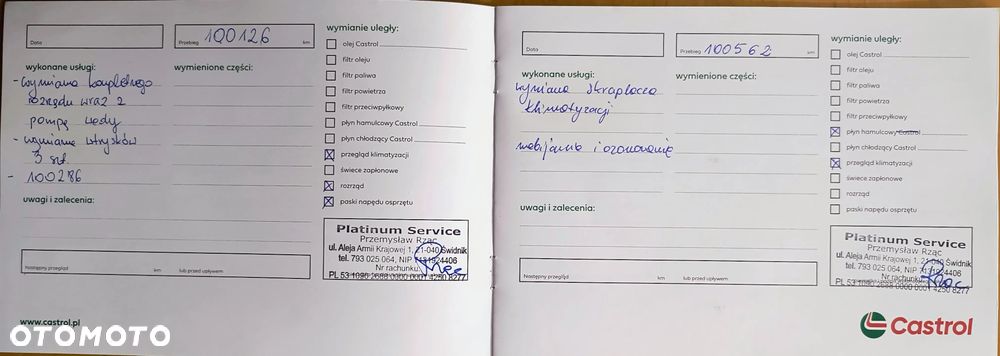 Data
Przebieg 100126 km
wykonane usługi:
wymienione części:
- wymiana kompletnego
rozrządu wraz z
pompą wody
- wymiana wtrysków
3 szt.
- 100286
uwagi i zalecenia:
Następny przegląd km lub przed upływem
www.castrol.pl
wymianie uległy:
olej Castrol
filtr oleju
filtr paliwa
filtr powietrza
filtr przeciwpyłkowy
płyn hamulcowy Castrol
płyn chłodzący Castrol
przegląd klimatyzacji
świece zapłonowe
rozrząd
paski napędu osprzętu
Platinum Service
Przemysław Rząc
ul. Aleja Armii Krajowej 1, 21-040 Świdnik
tel. 793 025 064, NIP
Nr rachunku:
Data
Przebieg 100562 km
wykonane usługi:
wymienione części:
wymiana skraplacza
klimatyzacji
nabijanie i ozonowanie
uwagi i zalecenia:
Następny przegląd km lub przed upływem
wymianie uległy:
olej Castrol
filtr oleju
filtr paliwa
filtr powietrza
filtr przeciwpyłkowy
płyn hamulcowy Castrol
płyn chłodzący Castrol
przegląd klimatyzacji
świece zapłonowe
rozrząd
paski napędu osprzętu
Platinum Service
Przemysław Rząc
ul. Aleja Armii Krajowej 1, 21-040 Świdnik
tel. 793 025 064, NIP
Nr rachunku:
Castrol
OTOMOTO